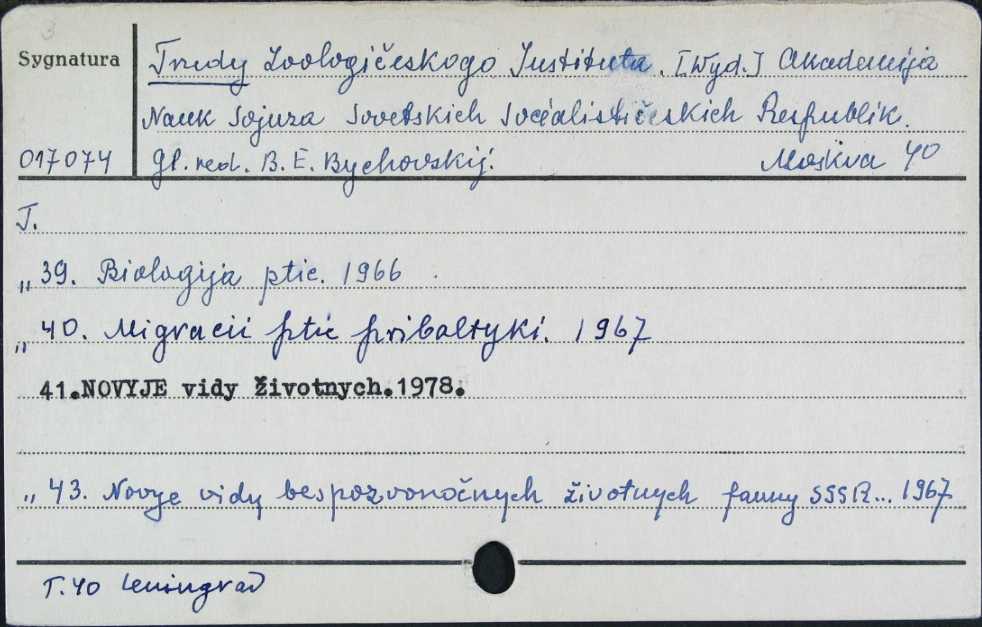 Sygnatura
Trudy Zoologičeskogo Instituta. [Wyd.] Akademija
Nauk Sojuza Sovetskich Socialističeskich Respublik.
017074
Gł. red. B. E. Bychovskij. Moskva 40
T.
„ 39. Biologija ptic. 1966
„ 40. Migracii ptic pribaltyki. 1967
41.NOVYJE vidy životnych.1978.
„ 43. Novye vidy bespozvonočnych životnych fauny SSSR... 1967
T.40 Leningrad